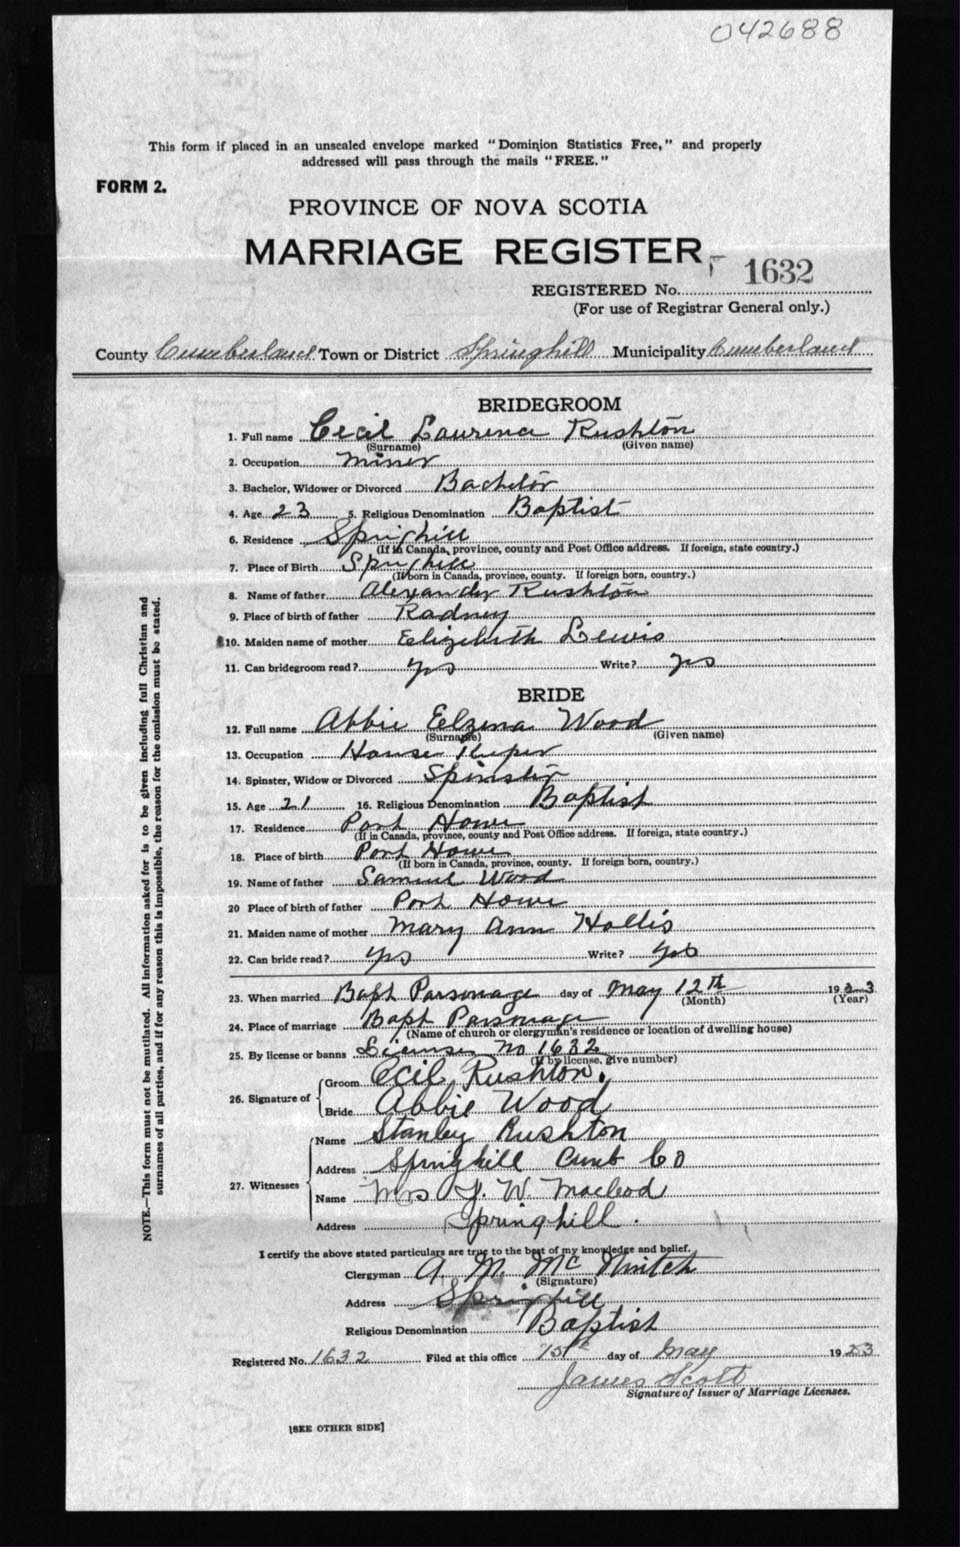 042688
This form if placed in an unsealed envelope marked "Dominion Statistics Free," and properly
addressed will pass through the mails "FREE."
FORM 2.
PROVINCE OF NOVA SCOTIA
MARRIAGE REGISTER
REGISTERED No. 1632
(For use of Registrar General only.)
County Cumberland Town or District Springhill Municipality Cumberland
BRIDEGROOM
1. Full name Cecil Laurence Rushton
(Surname) (Given name)
2. Occupation Miner
3. Bachelor, Widower or Divorced Bachelor
4. Age 23 5. Religious Denomination Baptist
6. Residence Springhill
(If in Canada, province, county and Post Office address. If foreign, state country.)
7. Place of Birth Springhill
(If born in Canada, province, county. If foreign born, country.)
8. Name of father Alexander Rushton
9. Place of birth of father Radney
10. Maiden name of mother Elizabeth Lewis
11. Can bridegroom read? yes Write? yes
BRIDE
12. Full name Abbie Eelzena Wood
(Surname) (Given name)
13. Occupation House Keeper
14. Spinster, Widow or Divorced Spinster
15. Age 21 16. Religious Denomination Baptist
17. Residence Port Howe
(If in Canada, province, county and Post Office address. If foreign, state country.)
18. Place of birth Port Howe
(If born in Canada, province, county. If foreign born, country.)
19. Name of father Samuel Wood
20 Place of birth of father Port Howe
21. Maiden name of mother Mary Ann Hollis
22. Can bride read? yes Write? yes
23. When married Bapt Parsonage day of May 12th 1923
(Month) (Year)
24. Place of marriage Bapt Parsonage
(Name of church or clergyman's residence or location of dwelling house)
25. By license or banns License no 1632
(If by license, give number)
26. Signature of
Groom Cecil Rushton.
Bride Abbie Wood
27. Witnesses
Name Stanley Rushton
Address Springhill Cumb Co
Name Mrs Macleod
Address Springhill.
I certify the above stated particulars are true to the best of my knowledge and belief.
Clergyman A. M. McNintch
(Signature)
Address Springhill
Religious Denomination Baptist
Registered No. 1632 Filed at this office 15th day of May 1923
James Scott
Signature of Issuer of Marriage Licenses.
[SEE OTHER SIDE]
NOTE.—This form must not be mutilated. All information asked for is to be given including full Christian and
surnames of all parties, and if for any reason this is impossible, the reason for the omission must be stated.